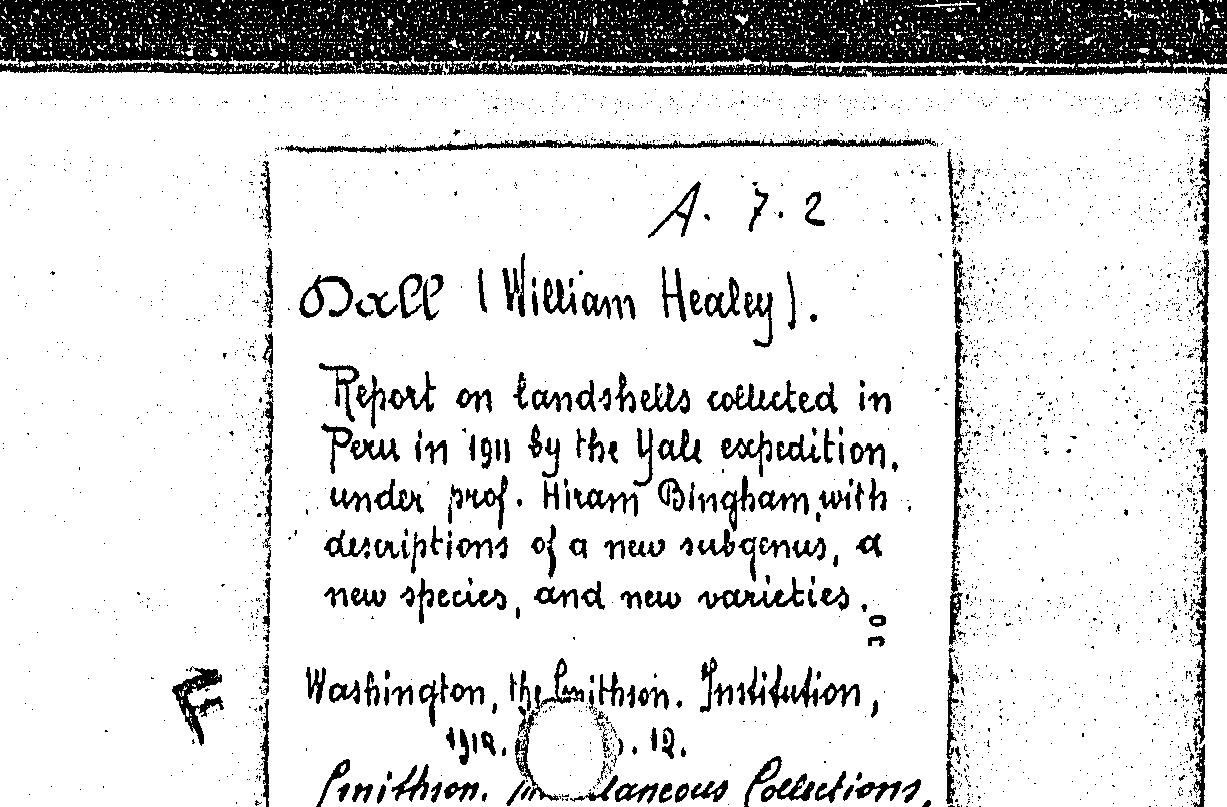 A. 7. 2
Dall (William Healey).
Report on landshells collected in
Peru in 1911 by the Yale expedition,
under prof. Hiram Bingham, with
descriptions of a new subgenus, a
new species, and new varieties.
30
Washington, the Smithson. Institution,
F
1912. . 12.
Smithson. Collections,